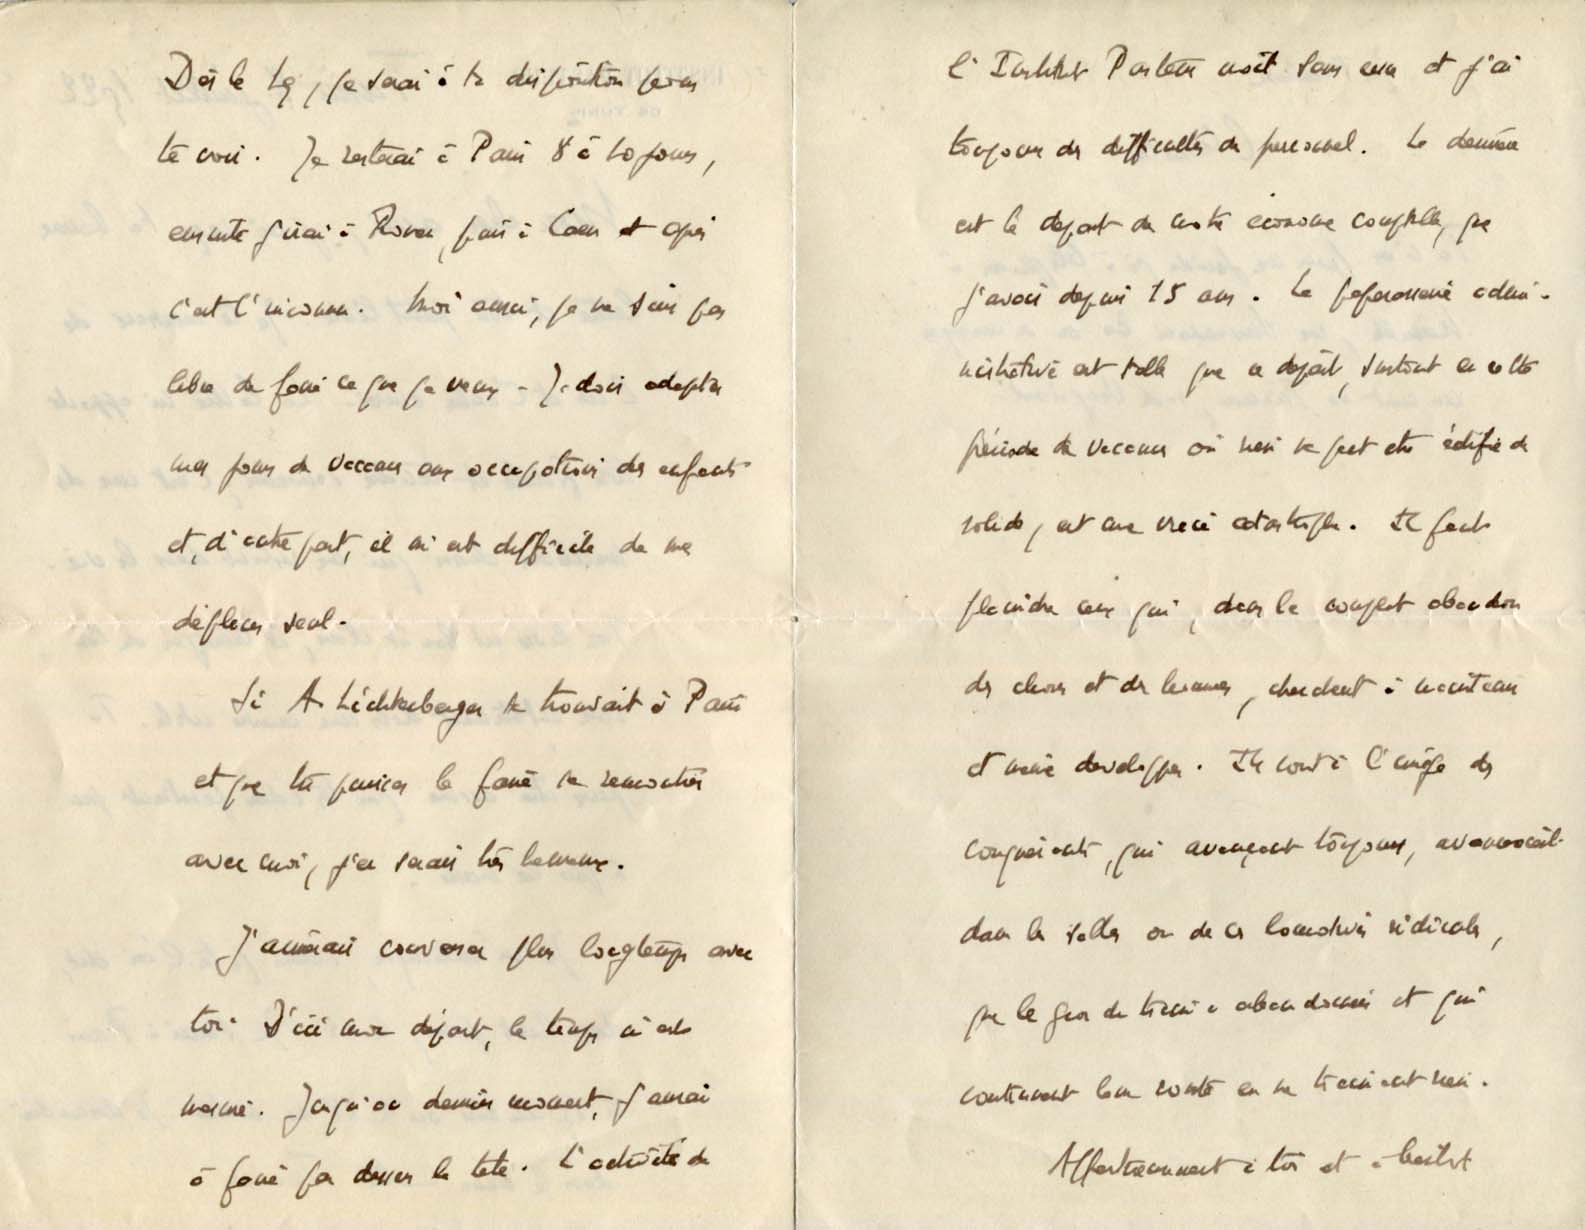 Dès le 19, je serai à ta disposition pour
te voir. Je resterai à Paris 8 à 10 jours,
ensuite j'irai à Rouen, puis à Caen et après
c'est l'inconnu. Moi aussi, je ne suis pas
libre de faire ce que je veux - Je dois adapter
mes jours de vacances aux occupations des enfants
et, d'autre part, il m'est difficile de me
déplacer seul.
Si A. Lichtenberger se trouvait à Paris
et que tu puisses le faire se rencontrer
avec moi, j'en serais très heureux.
J'aimerais converser plus longtemps avec
toi. D'ici mon départ, le temps m'est
mesuré. Jusqu'au dernier moment, j'aurai
à faire par dessus la tête. L'activité de
l'Institut Pasteur croît sans cesse et j'ai
toujours des difficultés de personnel. La dernière
est le départ de notre économe comptable, que
j'avais depuis 15 ans. La paperasserie admi-
nistrative est telle que ce départ, surtout en cette
période de vacances où rien ne peut être édifié de
solide, est une vraie catastrophe. Il faut
plaindre ceux qui, dans le complet abandon
des choses et des hommes, cherchent à maintenir
et même développer. Ils sont à l'image des
conquérants, qui avançent toujours,
dans les sables ou de ces locomotives ridicules,
que le gros du train a abandonnées et qui
continuent leur route en ne trainant rien.
Affectueusement à toi et à